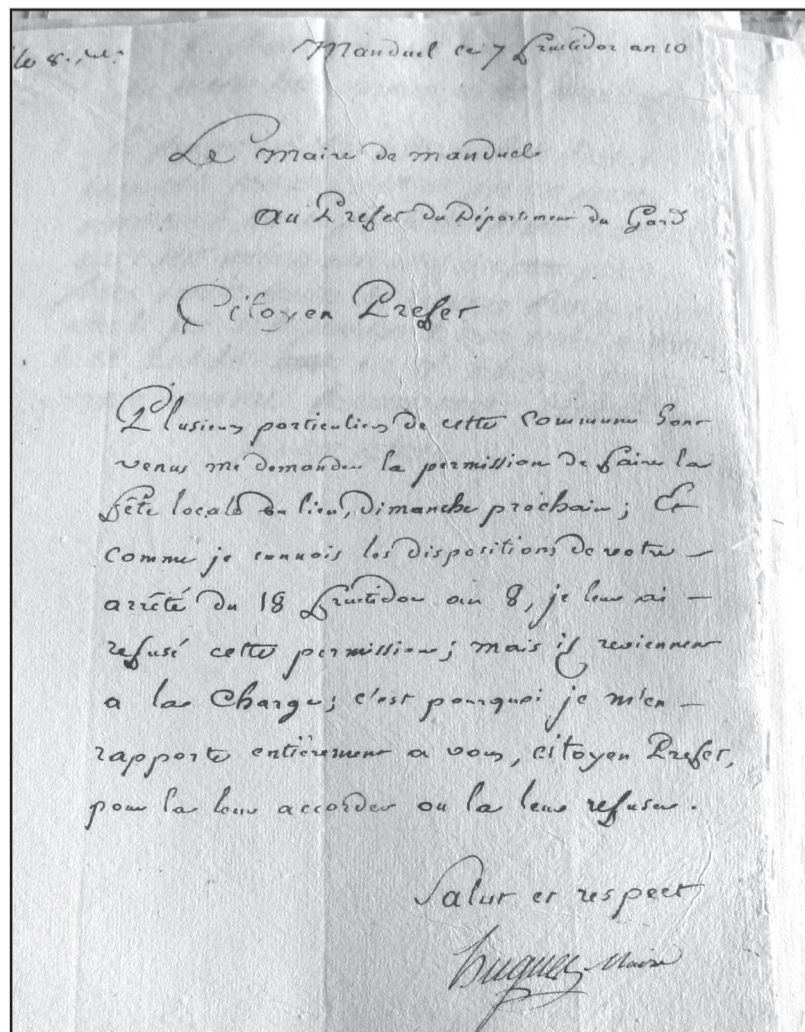 le 8.
Manduel ce 7 fructidor an 10
Le maire de manduel
au Prefet du Département du Gard
Citoyen Prefet
Plusieurs particuliers de cette commune sont
venus me demander la permission de faire la
fête locale du lieu, dimanche prochain; Et
comme je connois les dispositions de votre —
arrêté du 18 fructidor an 8, je leur ai —
refusé cette permission; mais ils reviennent
a la charge; c'est pourquoi je m'en —
rapporte entièrement a vous, citoyen Prefet,
pour la leur accorder ou la leur refuser.
Salut et respect
hugues, Maire